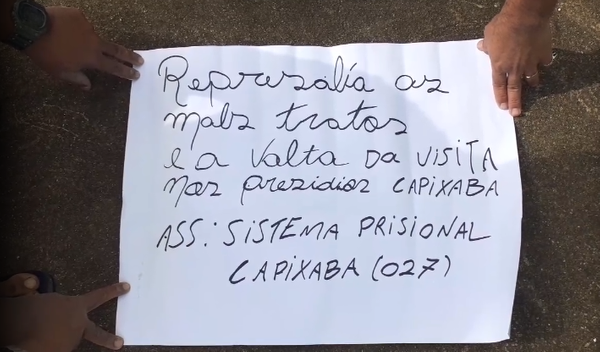 Represalia as
mals tratos
e a valta da VISITA
nos prezidios CAPIXABA
ASS: SISTEMA PRISIONAL
CAPIXABA (027)